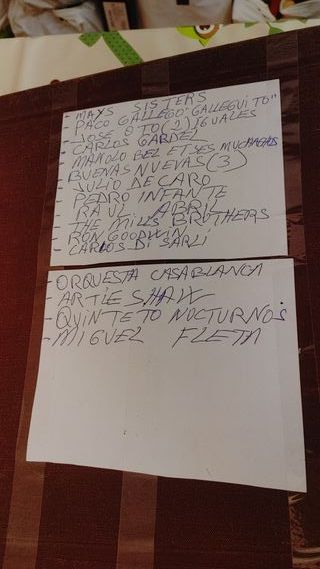 - MAYS SISTERS
- PACO GALLEGO "GALLEGUITO"
- JOSE OTO (2) IGUALES
- CARLOS GARDEL
- MANOLO BEL ET SES MUCHACHOS
- BUENAS NUEVAS (3)
- JULIO DE CARO
- PEDRO INFANTE
- RAUL ABRIL
- THE MILLS BROTHERS
- RON GOODWIN
- CARLOS DI SARLI
- ORQUESTA CASABLANCA
- ARTIE SHAW
- QUINTETO NOCTURNOS
- MIGUEL FLETA